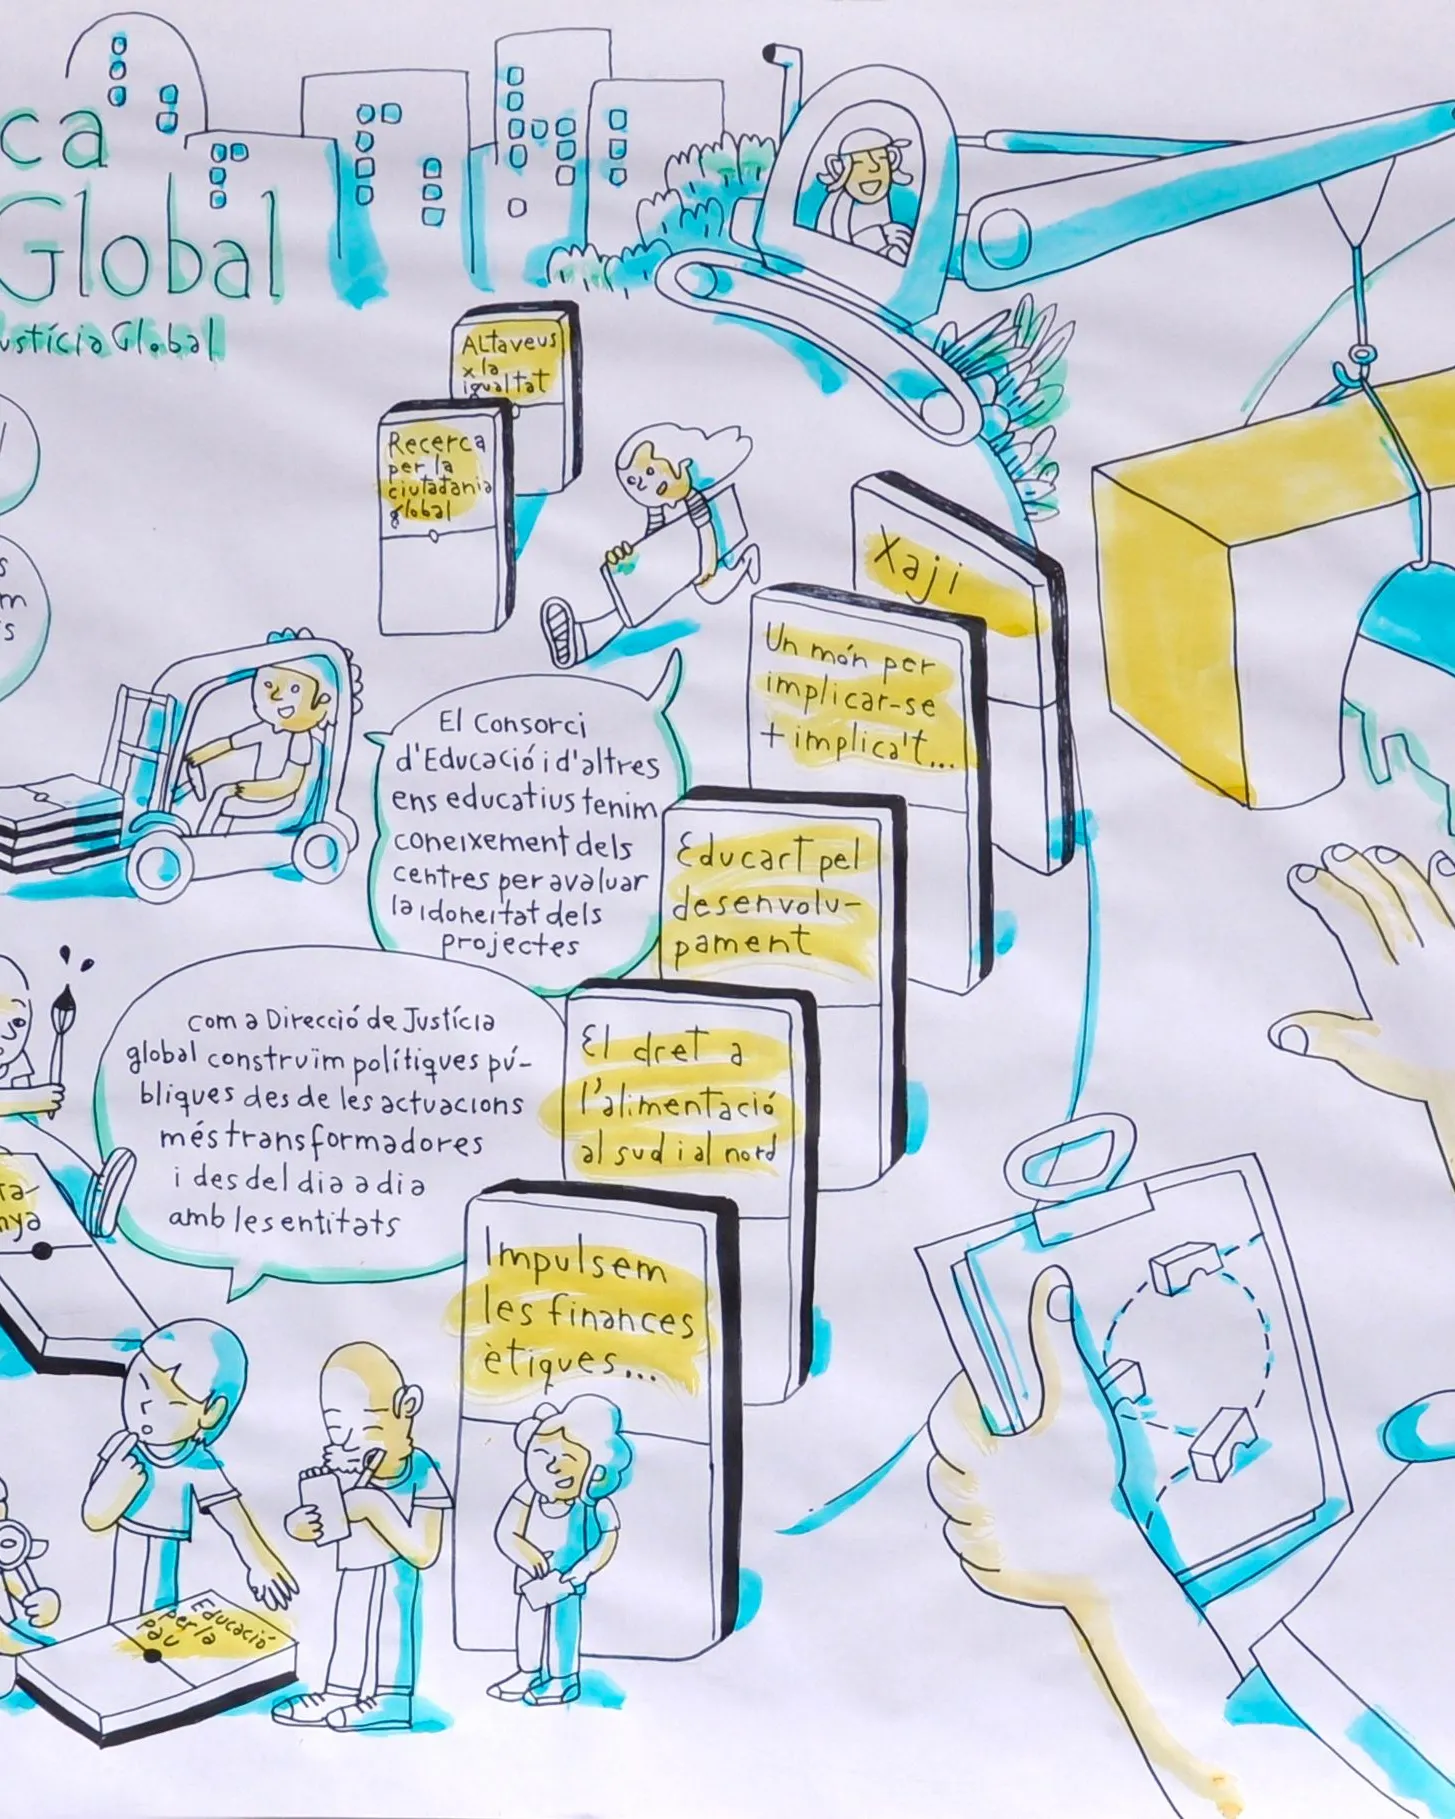 ca
Global
ustícia Global
Altaveus
x la
igualtat
Recerca
per la
ciutadania
global
s
m
s
Xaji
Un món per
implicar-se
+ implica't...
El Consorci
d'Educació i d'altres
ens educatius tenim
coneixement dels
centres per avaluar
la idoneitat dels
projectes
Educart pel
desenvolu-
pament
com a Direcció de Justícia
global construïm polítiques pú-
bliques des de les actuacions
més transformadores
i des del dia a dia
amb les entitats
El dret a
l'alimentació
al sud i al nord
ta-
nya
Impulsem
les finances
ètiques...
Educació
per la
pau